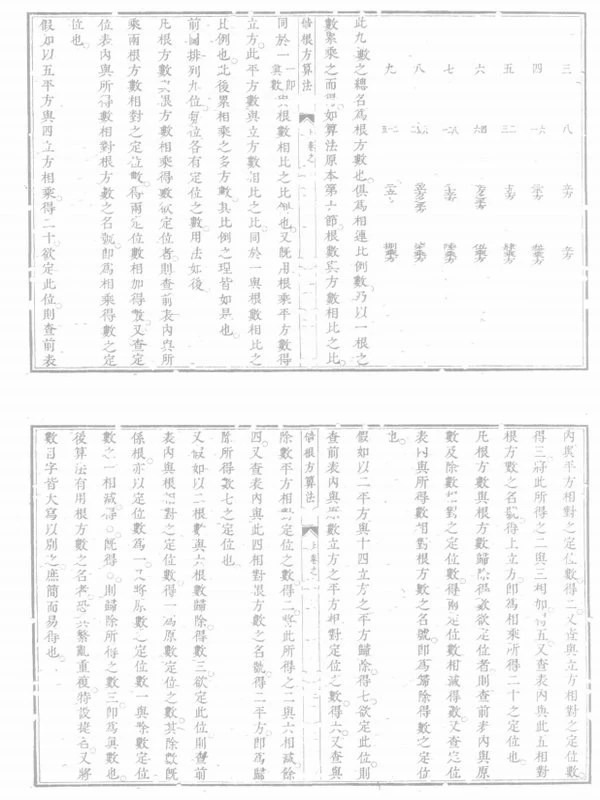 三　八
四　一六
五　三二
六　六四
七
八
九
此九數之總名為根方數也俱為相連比例數乃以一根之
數累乘之而得如算法原本第六節根數與方數相比之比
借根方算法
同於一
根數相比之比例也又既用根乘平方數得
立方此平方數與立方數相比之比同於一與根數相比之
比例也此後累相乘之多方數其比例之理皆如是也
前圖排列九位每位各有定位之數用法如後
凡根方數與根方數相乘得數欲定位者則查前表內與所
乘兩根方數相對之定位數得兩定位數相加得數又查定
位表內與所得數相對根方數之名號即為相乘得數之定
位也
假如以五平方與四立方相乘得二十欲定此位則查前表
內與平方相對之定位數得二又查與立方相對之定位數
得三將此所得之二與三相加得五又查表內與此五相對
根方數之名號得上立方即為相乘所得二十之定位也
凡根方數與根方數歸除得數欲定位者則查前表內與原
數及除數相對之定位數得兩定位數相減得數又查定位
表內與所得數相對根方數之名號即為歸除得數之定位
也
假如以二平方與十四立方之平方歸除得七欲定此位則
查前表內與原數立方之平方相對定位之數得六又查與
借根方算法
除數平方相對定位之數得二將此所得之二與六相減餘
四又查表內與此四相對根方數之名號得二平方即為歸
除所得數七之定位也
又假如以二根數與六根數歸除得數三欲定此位則查前
表內與根相對之定位數得一為原數定位之數其除數既
係根亦以定位數為一又將原數定位數一與除數定位
數之一相減得〇既得〇則歸除所得之數三即為真數也
後算法有用根方數之名者恐其繁亂重複特設號名又將
數目字皆大寫以別之庶簡而易得也